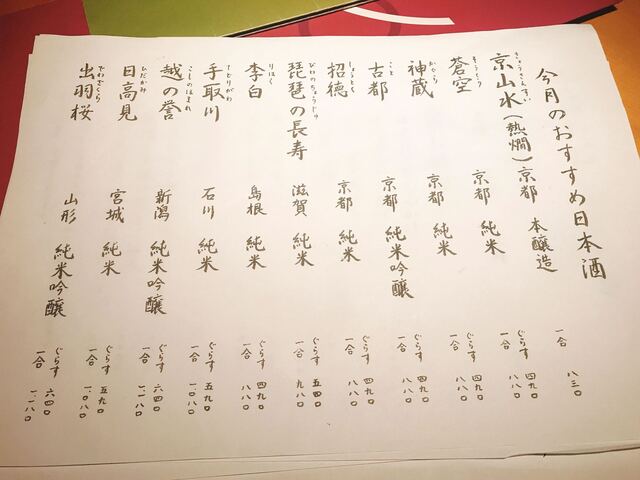 今月のおすすめ日本酒
きょうさんすい
京山水(熱燗) 京都 本醸造 一合 八三〇
そうくう
蒼空 京都 純米 ぐらす 四九〇
一合 八八〇
かぐら
神蔵 京都 純米 ぐらす 四九〇
一合 八八〇
こと
古都 京都 純米吟醸 ぐらす 四九〇
一合 八八〇
しょうとく
招徳 京都 純米 ぐらす 四九〇
一合 八八〇
びわのちょうじゅ
琵琶の長寿 滋賀 純米 ぐらす 五四〇
一合 九八〇
りはく
李白 島根 純米 ぐらす 四九〇
一合 八八〇
てどりがわ
手取川 石川 純米 ぐらす 五九〇
一合 一、〇八〇
こしのほまれ
越の誉 新潟 純米吟醸 ぐらす 六四〇
一合 一、一八〇
ひだかみ
日高見 宮城 純米 ぐらす 五九〇
一合 一、〇八〇
でわざくら
出羽桜 山形 純米吟醸 ぐらす 六四〇
一合 一、一八〇